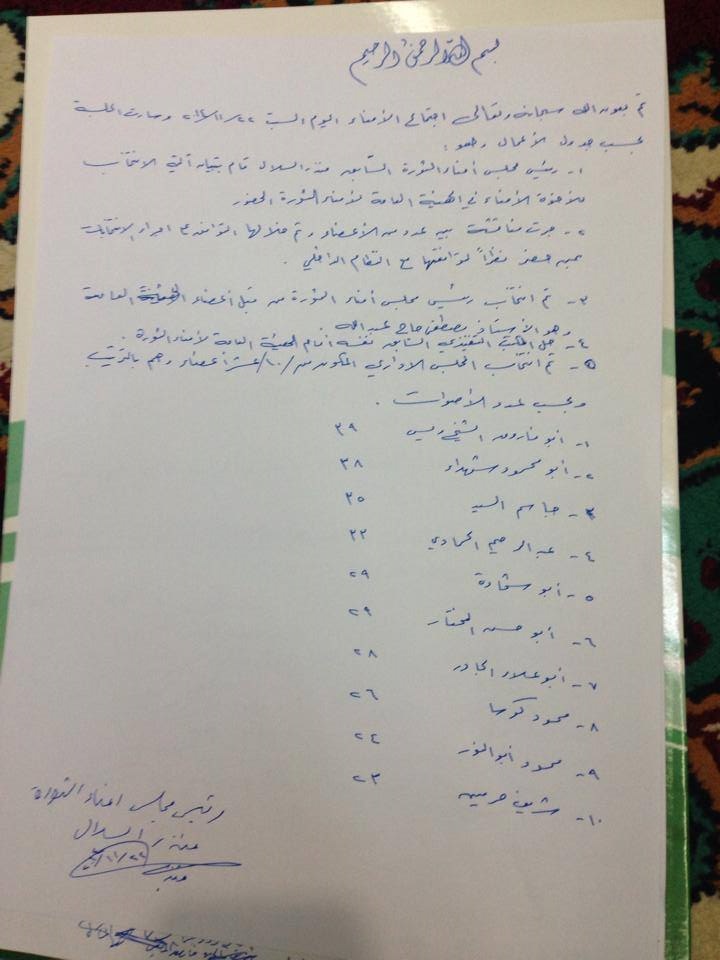 بسم الله الرحمن الرحيم
تم بعون الله سبحانه وتعالى اجتماع الأمناء اليوم السبت ٢٢ــ١١ــ وصارت الجلسة
بحسب جدول الأعمال وهو :
١- رئيس مجلس أمناء الثورة السابق منذر السلال قام بتبيان آلية الانتخاب
للأخوة الأمناء في الهيئة العامة لأمناء الثورة الحضور
٢- جرت مناقشة بين عدد من الأعضاء وتم خلالها التوافق على اجراء الانتخابات
بمن حضر نظراً لتوافقها مع النظام الداخلي .
٣- تم انتخاب رئيس مجلس أمناء الثورة من قبل أعضاء الهيئة العامة
وهو الأستاذ مصطفى حاج عبدالله .
٤- حل المكتب التنفيذي السابق نفسه أمام الهيئة العامة لأمناء الثورة .
٥- تم انتخاب المجلس الاداري المكون من /١٠/ عشر أعضاء وهم بالترتيب
وبحسب عدد الأصوات .
١- ابو فاروق الشيخ ويس ٣٩
٢- أبو محمود شهداء ٣٨
٣- جاسم السيد ٣٥
٤- عبد الرحيم الحمادي ٣٣
٥- أبو شحادة ٢٩
٦- أبو حسن المختار ٢٩
٧- أبو علاء الجادر ٢٨
٨- محمود كوسا ٢٦
٩- محمود أبو النور ٢٤
١٠- شريف ٢٣
رئيس مجلس امناء الثورة
منذر السلال